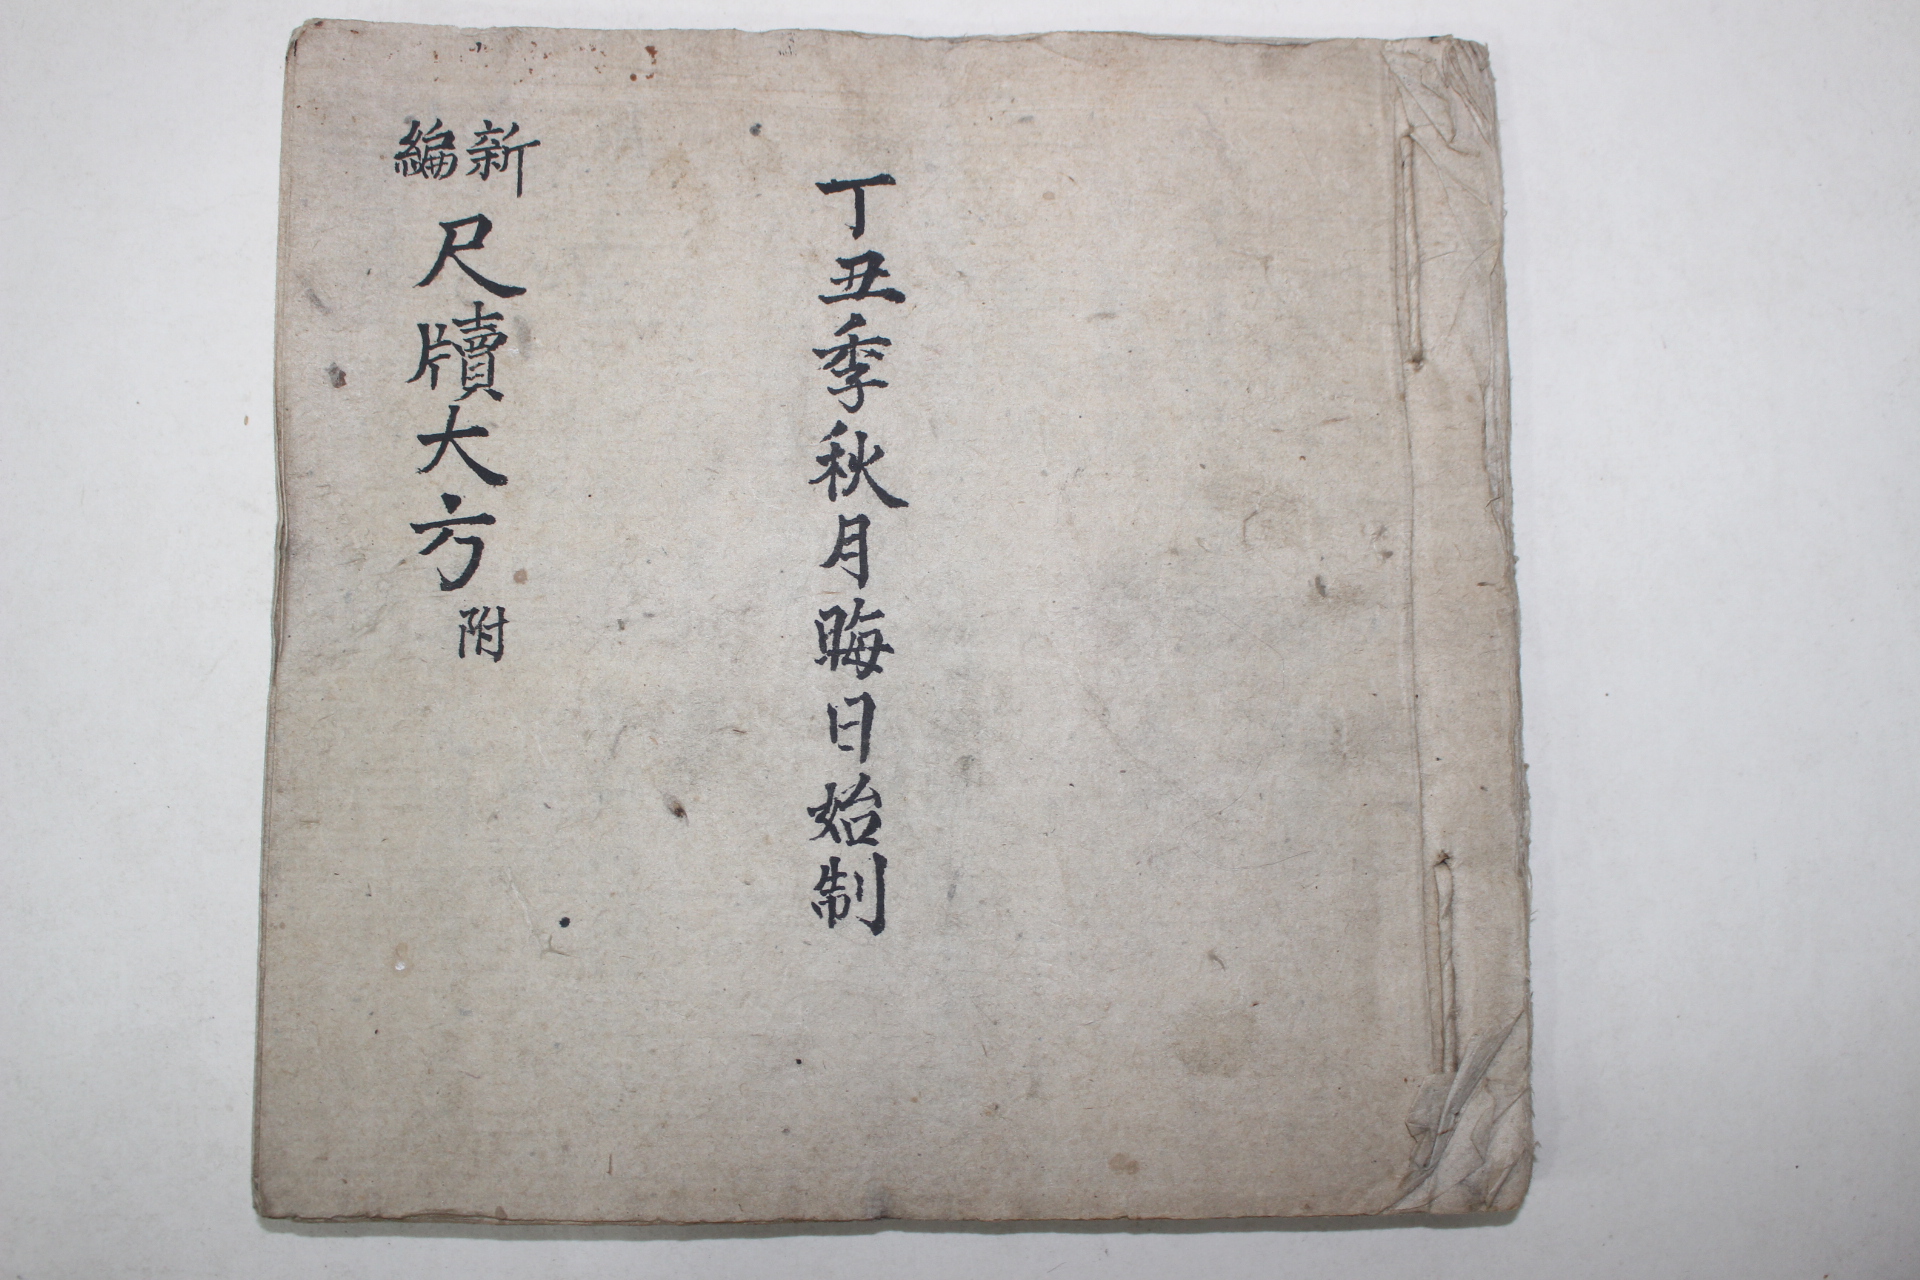 丁丑季秋月晦日始制
新編尺牘大方附